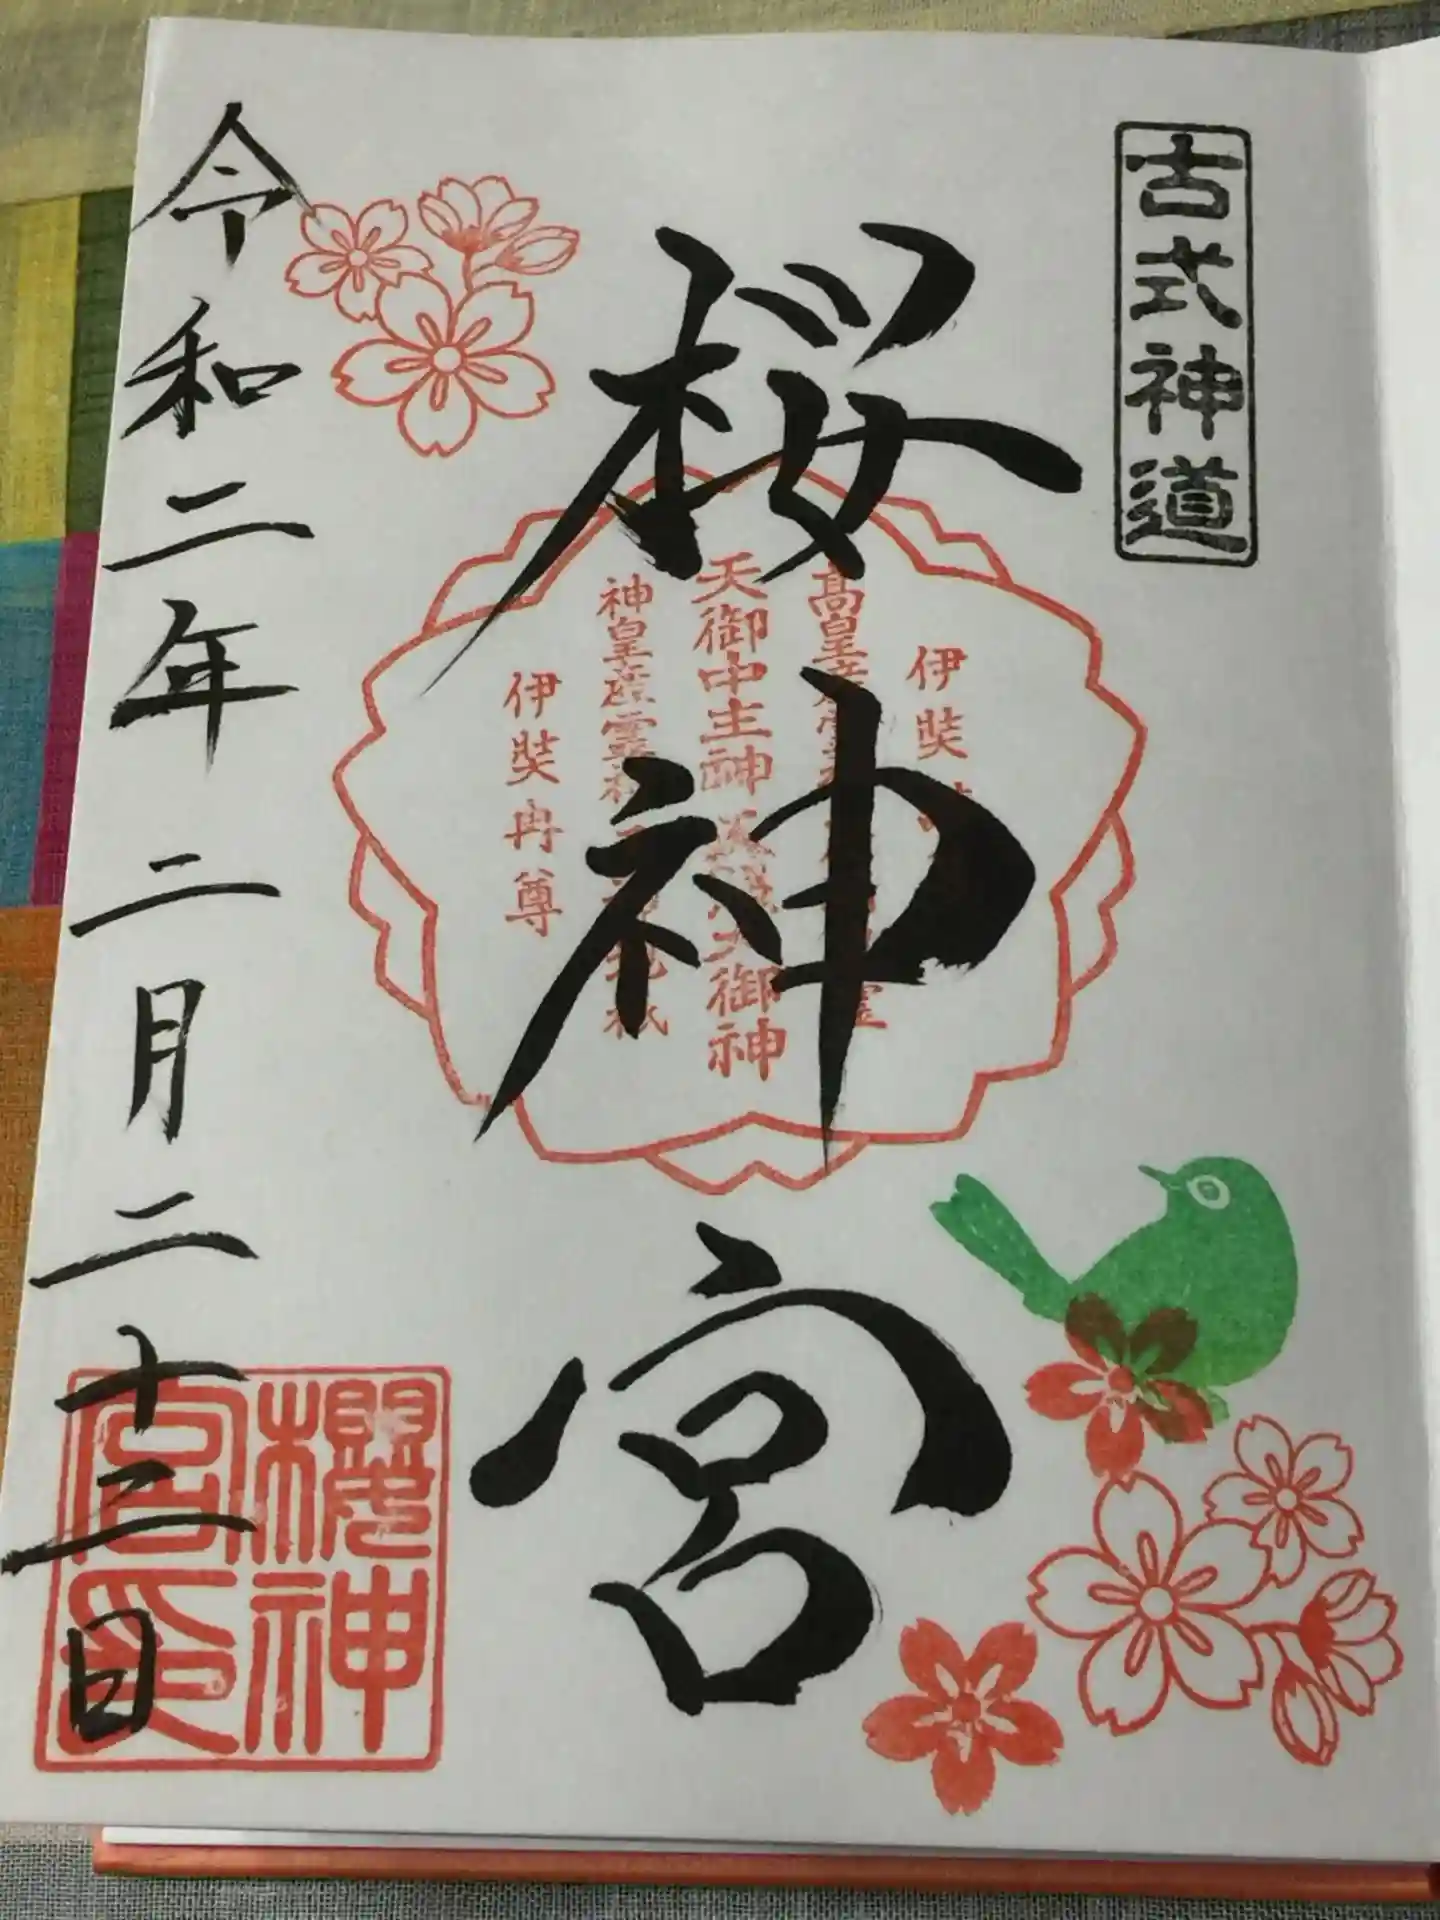 古式神道
桜神宮
伊奘
高皇産霊
天御中主神天照大御神
神皇産霊
伊奘冉尊
令和二年二月二十三日
櫻神
宮印